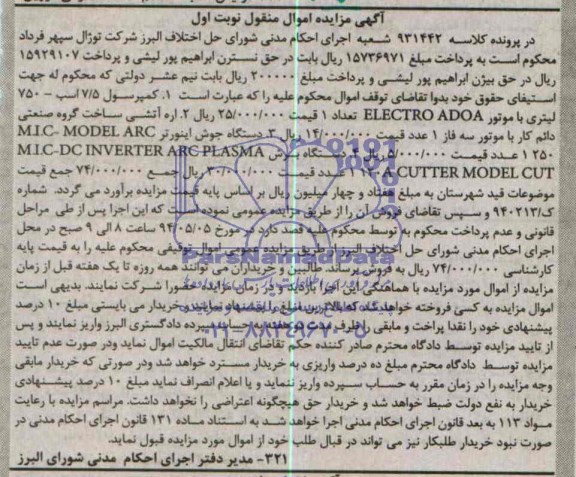 آگهی مزایده اموال منقول نوبت اول
در پرونده کلاسه ۹۳۱۴۴۲ شعبه اجرای احکام مدنی شورای حل اختلاف البرز شرکت توژال سپهر فرداد
محکوم است به پرداخت مبلغ ۱۵۷۳۶۹۷۱ ریال بابت در حق نسترن ابراهیم پور لیشی و پرداخت ۱۵۹۲۹۱۰۷
ریال در حق بیژن ابراهیم پور لیشی و پرداخت مبلغ ۲۰۰۰۰۰ ریال بابت نیم عشر دولتی که محکوم له جهت
استیفای حقوق خود بدوا تقاضای توقف اموال محکوم علیه را که عبارت است ۱. کمپرسول ۷/۵ اسب - ۷۵۰
لیتری با موتور ELECTRO ADOA تعداد ۱ قیمت ۲۵/۰۰۰/۰۰۰ ریال ۲. اره آتشی ساخت گروه صنعتی
دائم کار با موتور سه فاز ۱ عدد قیمت ۱۴/۰۰۰/۰۰۰ ریال ۳. دستگاه جوش اینورتر M.I.C- MODEL ARC
۲۵۰ ۱ عدد قیمت ۵/۰۰۰/۰۰۰ ریال ۴. دستگاه برش M.I.C-DC INVERTER ARC PLASMA
CUTTER MODEL CUT ۱ عدد قیمت ۳۰/۰۰۰/۰۰۰ ریال جمع ۷۴/۰۰۰/۰۰۰ جمع قیمت
موضوعات قید شهرستان به مبلغ هفتاد و چهار میلیون ریال بر اساس پایه قیمت مزایده برآورد می گردد. شماره
ک/۹۴۰۲۱۳ و سپس تقاضای فروش آن را از طریق مزایده عمومی نموده است که این اجرا پس از طی مراحل
قانونی و عدم پرداخت محکوم به توسط محکوم علیه قصد دارد در مورخ ۹۴/۰۵/۰۵ ساعت ۸ الی ۹ صبح در محل
اجرای احکام مدنی شورای حل اختلاف البرز از طریق مزایده عمومی اموال توقیفی محکوم علیه را به قیمت پایه
کارشناسی ۷۴/۰۰۰/۰۰۰ ریال به فروش برساند. طالبین و خریداران می توانند همه روزه تا یک هفته قبل از زمان
مزایده از اموال مورد مزایده با هماهنگی این اجرا بازدید و در زمان مزایده حضورا شرکت نمایند. بدیهی است
اموال مزایده به کسی فروخته خواهد شد که بالاترین مبلغ را پیشنهاد نماید. خریدار می بایستی مبلغ ۱۰ درصد
پیشنهادی خود را نقدا پراخت و مابقی را ظرف مدت یک هفته به حساب سپرده دادگستری البرز واریز نمایند و پس
از تایید مزایده توسط دادگاه محترم صادر کننده حکم تقاضای انتقال مالکیت اموال نماید ودر صورت عدم تایید
مزایده توسط دادگاه محترم مبلغ ده درصد واریزی به خریدار مسترد خواهد شد ودر صورتی که خریدار مابقی
وجه مزایده را در زمان مقرر به حساب سپرده واریز ننماید و یا اعلام انصراف نماید مبلغ ۱۰ درصد پیشنهادی
خریدار به نفع دولت ضبط خواهد شد و خریدار حق هیچگونه اعتراضی را نخواهد داشت. مراسم مزایده با رعایت
مواد ۱۱۳ به بعد قانون اجرای احکام مدنی اجرا خواهد شد به استناد ماده ۱۳۱ قانون اجرای احکام مدنی در
صورت نبود خریدار طلبکار نیز می تواند در قبال طلب خود از اموال مورد مزایده قبول نماید.
۳۲۱- مدیر دفتر اجرای احکام مدنی شورای البرز
ParsNamadData